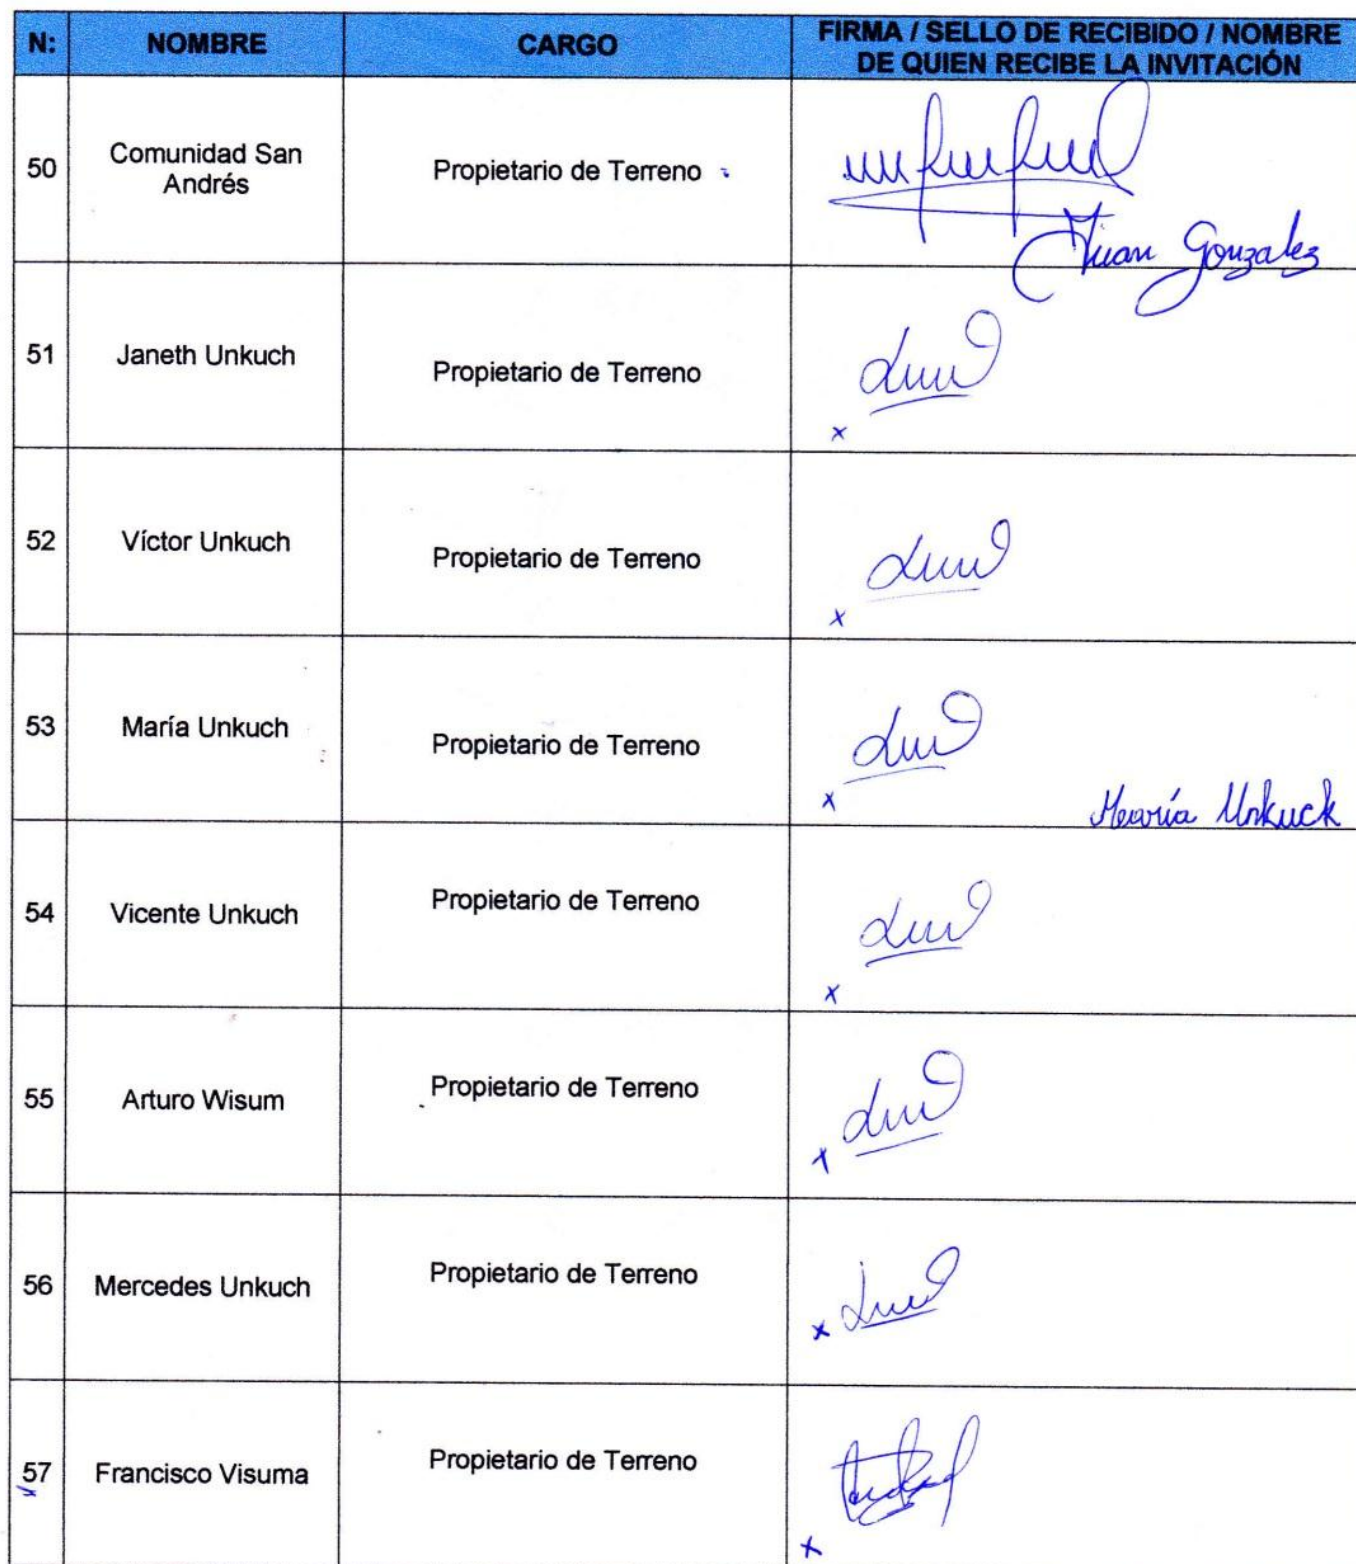 N: NOMBRE CARGO FIRMA / SELLO DE RECIBIDO / NOMBRE
DE QUIEN RECIBE LA INVITACIÓN
50 Comunidad San
Andrés Propietario de Terreno
Juan Gonzalez
51 Janeth Unkuch Propietario de Terreno
x
52 Víctor Unkuch Propietario de Terreno
x
53 María Unkuch Propietario de Terreno
x María Unkuck
54 Vicente Unkuch Propietario de Terreno
x
55 Arturo Wisum Propietario de Terreno
x
56 Mercedes Unkuch Propietario de Terreno
x
57 Francisco Visuma Propietario de Terreno
x